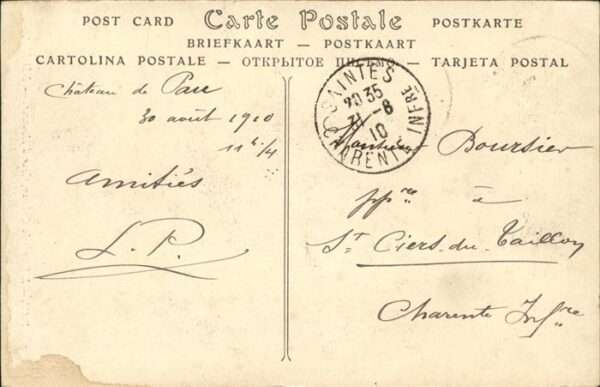 POST CARD Carte Postale POSTKARTE
BRIEFKAART — POSTKAART
CARTOLINA POSTALE — ОТКРЫТОЕ ПИСЬМО — TARJETA POSTAL
Château de Pau
30 août 1910
11 h 1/4
Amitiés
L. P.
SAINTES
20 35
31 - 8
10
CHARENTE INFRE
Monsieur Boursier
ppre à
St Ciers-du-Taillon
Charente Infre